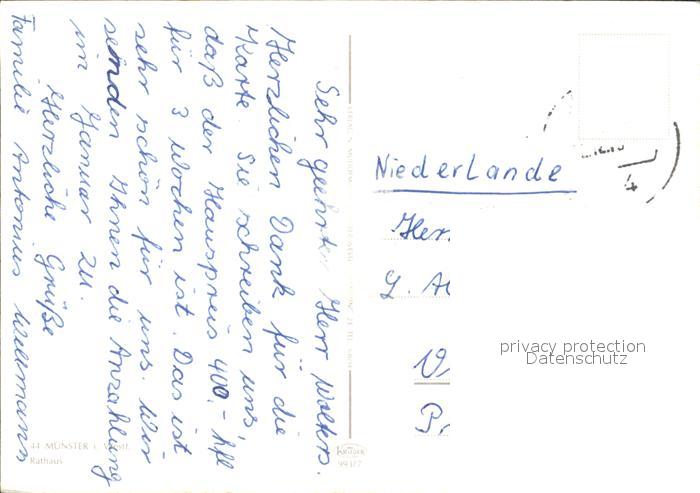 Sehr geehrter Herr Wolters.
Herzlichen Dank für die
Karte. Sie schreiben uns,
daß der Hauspreis 400,- hfl
für 3 Wochen ist. Das ist
sehr schön für uns. Wir
senden Ihnen die Anzahlung
im Januar zu.
Herzliche Grüße
Familie Antonius Willemann
44 MÜNSTER i. Westf.
Rathaus
KRÜGER
993/7
Niederlande
Her.
privacy protection
Datenschutz